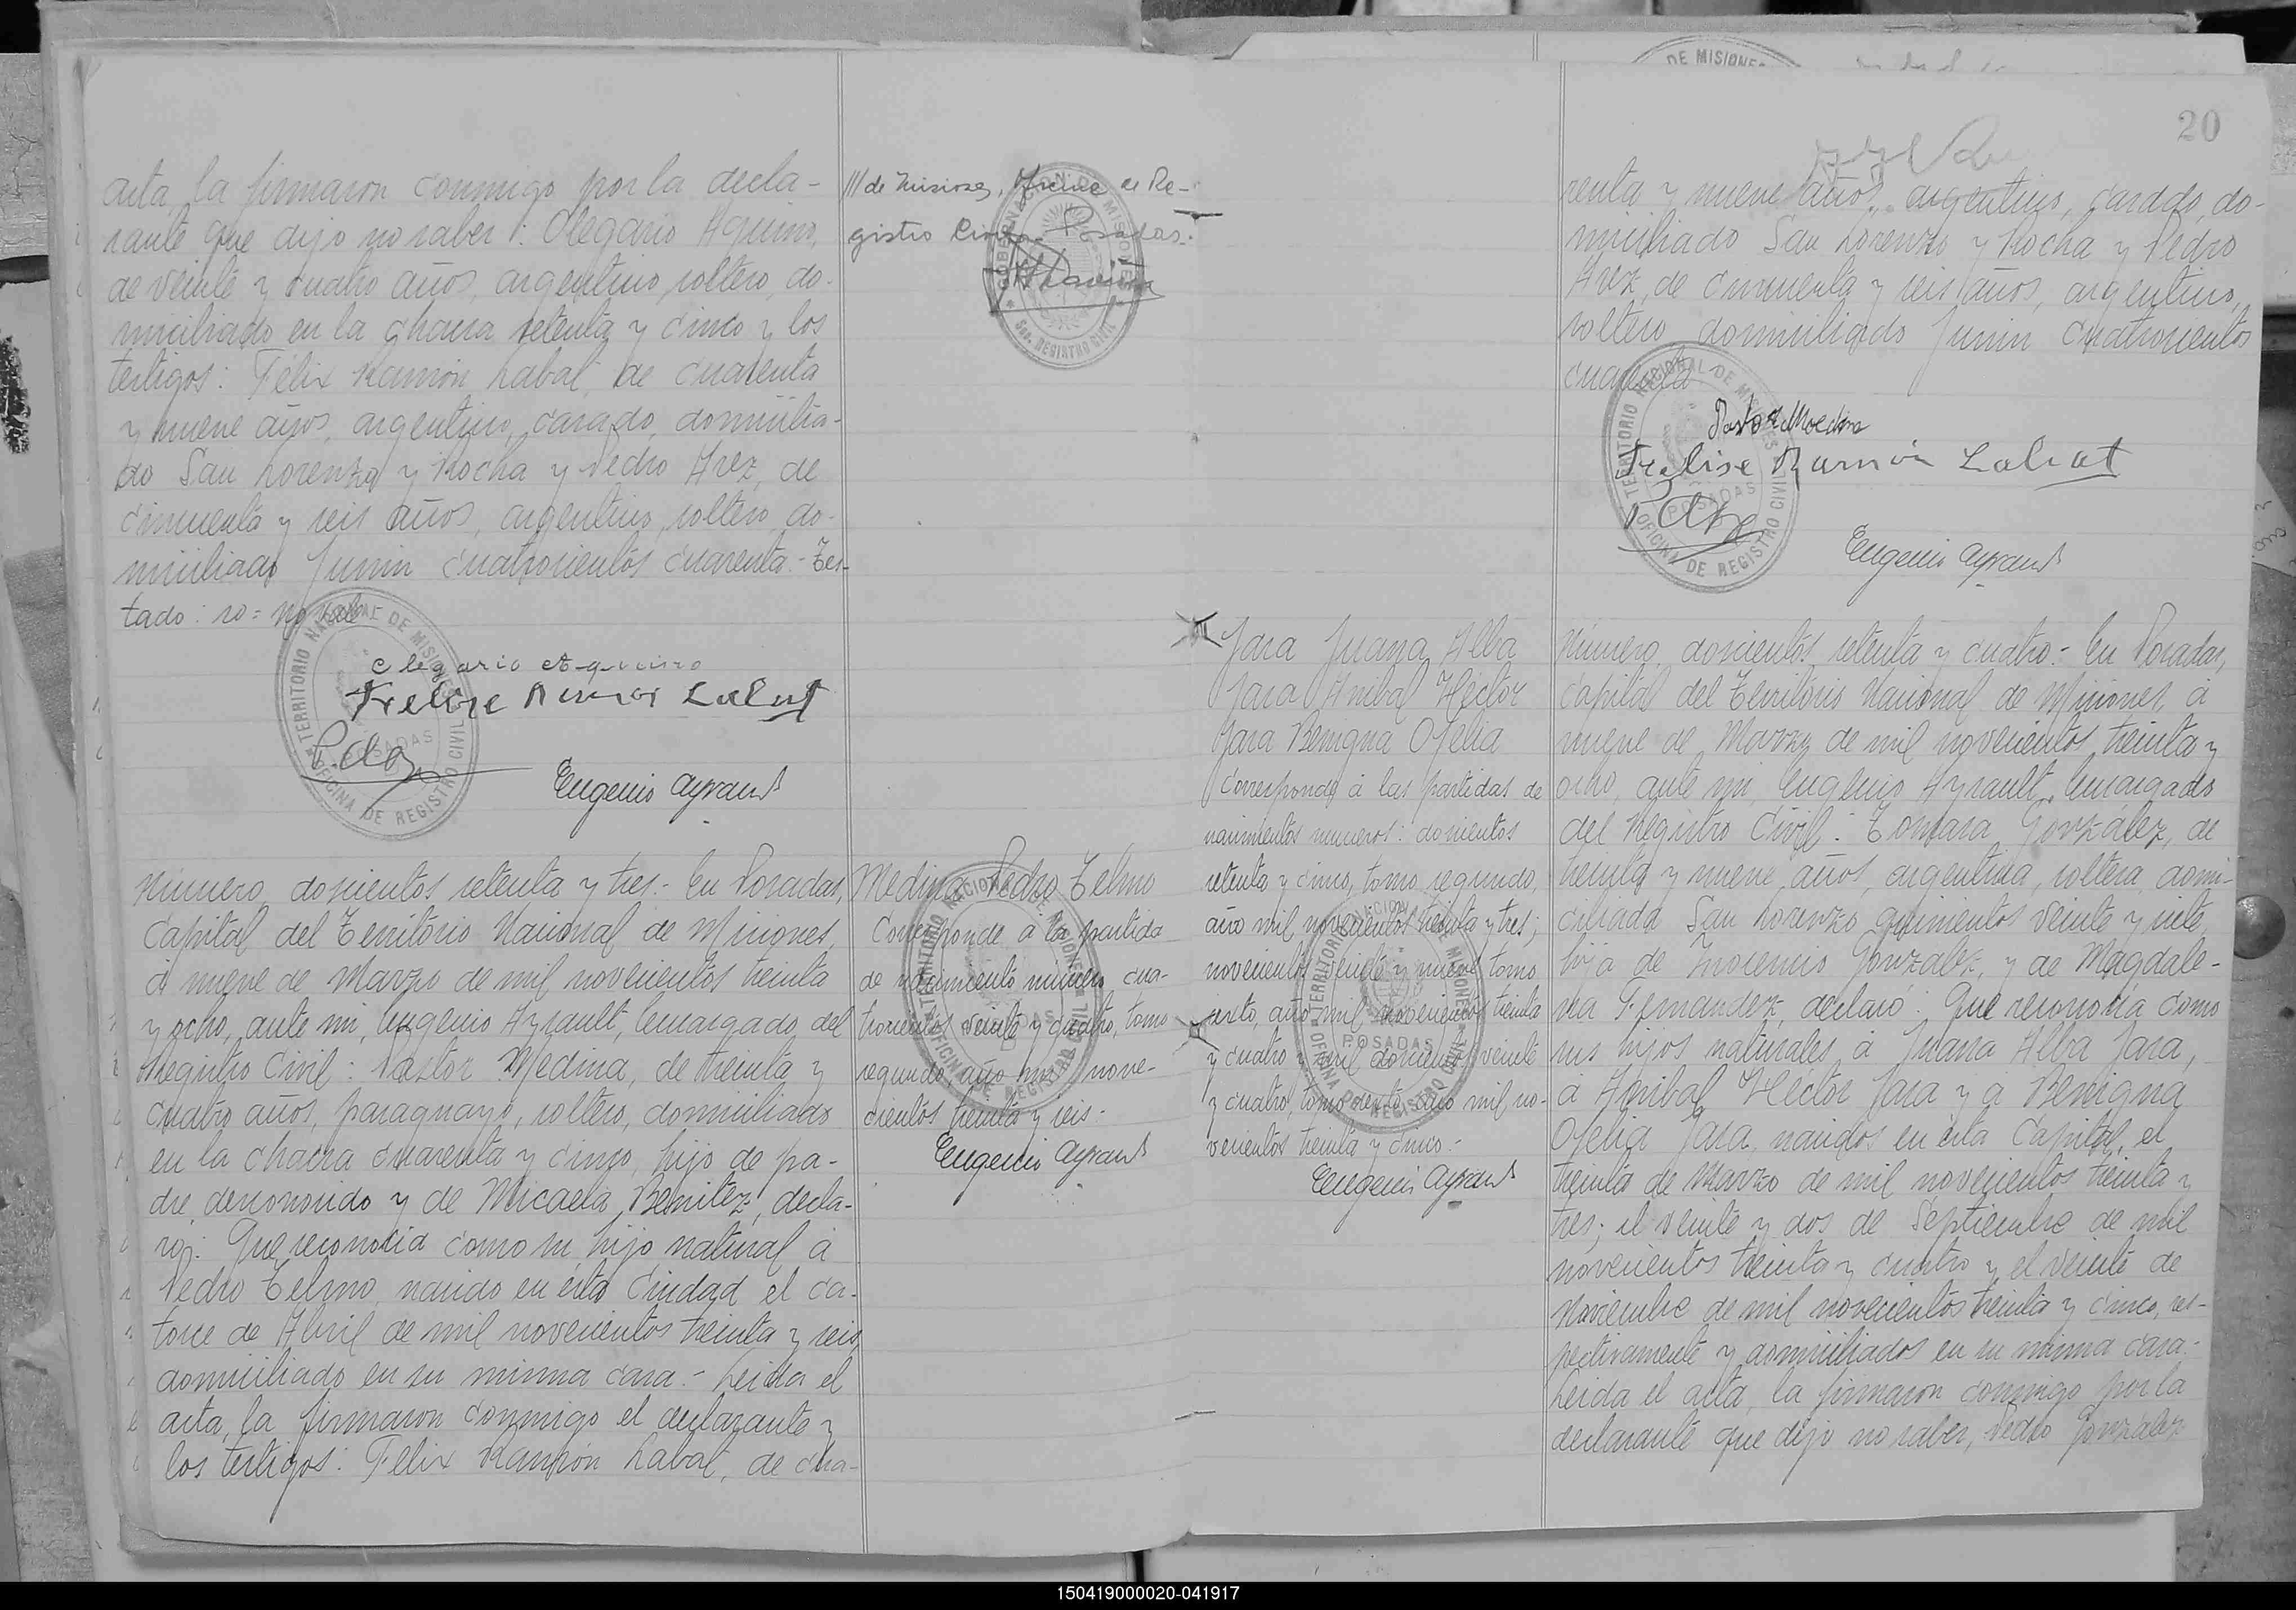 acta, la firmaron conmigo por la decla-
rante que dijo no saber: Olegario Aquino,
de veinte y cuatro años, argentino, soltero, do-
miciliado en la chacra setenta y cinco y los
testigos: Félix Ramón Labat, de cuarenta
y nueve años, argentino, casado, domicilia-
do San Lorenzo y Rocha y Pedro Arez, de
cincuenta y seis años, argentino, soltero, do-
miciliado Junin cuatrocientos cuarenta.- Tes-
tado: ro= no vale
Olegario Aquino
Felise Ramon Labat
Eugenio Ayrault
TERRITORIO NACIONAL DE MISIONES
POSADAS
OFICINA DE REGISTRO CIVIL
Número doscientos setenta y tres.- En Posadas,
Capital del Territorio Nacional de Misiones,
á nueve de Marzo de mil novecientos treinta
y ocho, ante mi, Eugenio Ayrault, Encargado del
Registro Civil: Pastor Medina, de treinta y
cuatro años, paraguayo, soltero, domiciliado
en la chacra cuarenta y cinco, hijo de pa-
dre desconocido y de Micaela Benitez, decla-
ró: Que reconocía como su hijo natural á
Pedro Telmo, nacido en ésta Ciudad el ca-
torce de Abril de mil novecientos treinta y seis,
domiciliado en su misma casa.- Leida el
acta, la firmaron conmigo el declarante y
los testigos: Félix Ramón Labat, de cua-
/// de Misiones, Oficina de Re-
gistro Civil- Posadas.-
GOBERNACION DE MISIONES
Sec. REGISTRO CIVIL
Medina Pedro Telmo
Corresponde á la partida
de nacimiento número cua-
trocientos veinte y cuatro, tomo
segundo, año mil nove-
cientos treinta y seis.-
Eugenio Ayrault
TERRITORIO NACIONAL DE MISIONES
POSADAS
OFICINA DE REGISTRO CIVIL
DE MISIONES
20
renta y nueve años, argentino, casado, do-
miciliado San Lorenzo y Rocha y Pedro
Arez, de cincuenta y seis años, argentino,
soltero domiciliado Junin cuatrocientos
cuarenta
Pastor Medina
Felise Ramon Labat
Eugenio Ayrault
TERRITORIO NACIONAL DE MISIONES
POSADAS
OFICINA DE REGISTRO CIVIL
Jara Juana Alba
Jara Anibal Héctor
Jara Benigna Ofelia
Corresponde á las partidas de
nacimientos números: doscientos
setenta y cinco, tomo segundo,
año mil novecientos treinta y tres;
novecientos veinte y nueve, tomo
sexto, año mil novecientos treinta
y cuatro y mil doscientos veinte
y cuatro, tomo sexto, año mil no-
vecientos treinta y cinco.-
Eugenio Ayrault
TERRITORIO NACIONAL DE MISIONES
POSADAS
OFICINA DE REGISTRO CIVIL
Número doscientos setenta y cuatro.- En Posadas,
Capital del Territorio Nacional de Misiones, á
nueve de Marzo de mil novecientos treinta y
ocho, ante mi, Eugenio Ayrault, Encargado
del Registro Civil: Tomasa González, de
treinta y nueve años, argentina, soltera, domi-
ciliada San Lorenzo quinientos veinte y siete,
hija de Inocencio González, y de Magdale-
na Fernandez, declaró: Que reconocía como
sus hijos naturales á Juana Alba Jara,
á Anibal Héctor Jara y a Benigna
Ofelia Jara, nacidos en ésta Capital, el
treinta de Marzo de mil novecientos treinta y
tres; el veinte y dos de Septiembre de mil
novecientos treinta y cuatro y el veinte de
Noviembre de mil novecientos treinta y cinco, res-
pectivamente y domiciliados en su misma casa.-
Leida el acta, la firmaron conmigo por la
declarante que dijo no saber, Pedro González
150419000020-041917